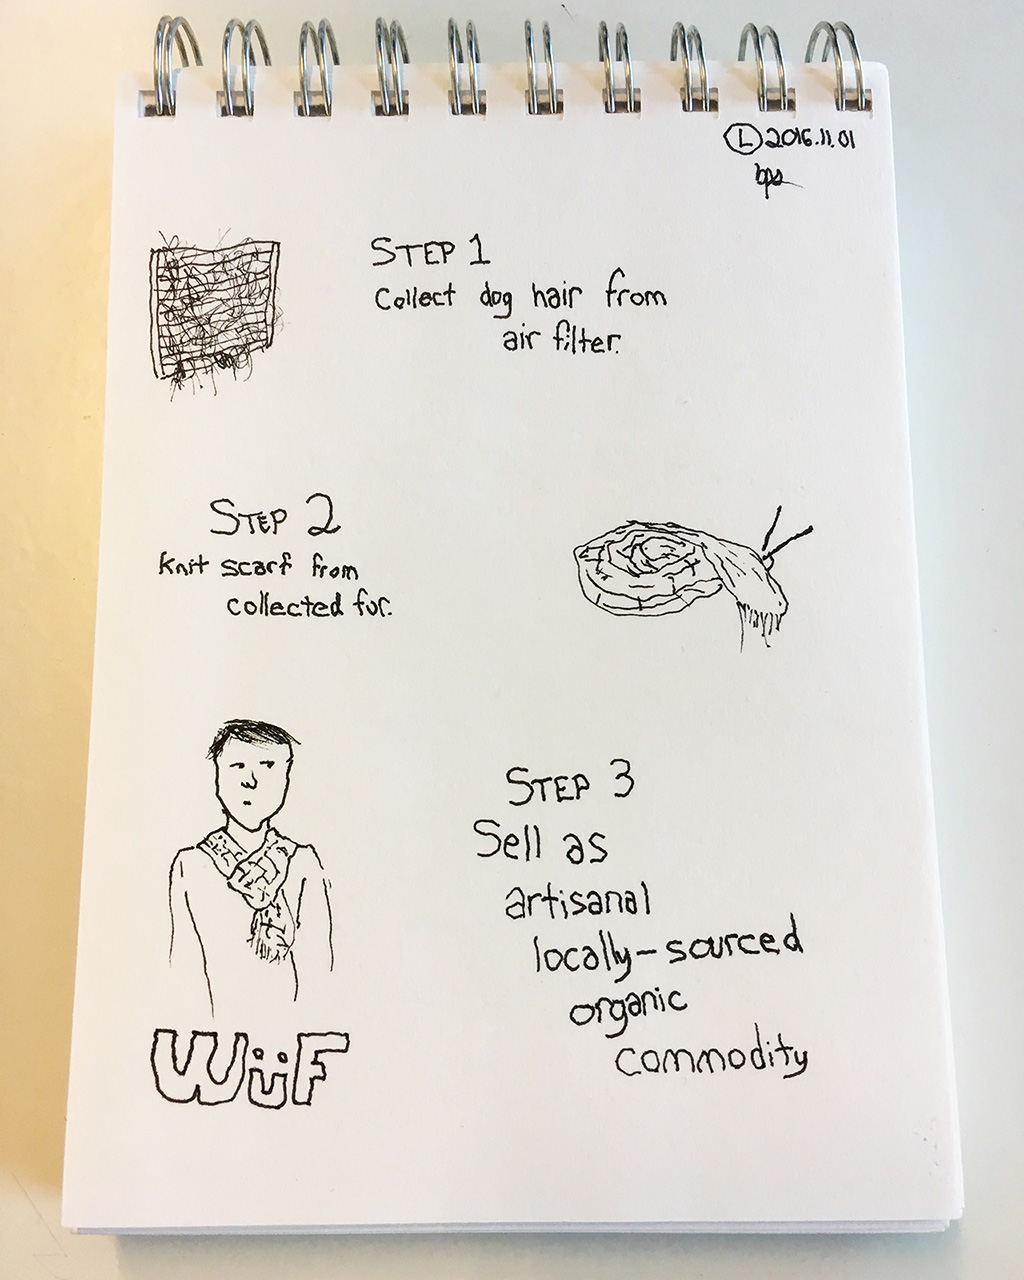 Ⓛ 2016.11.01
bps
STEP 1
Collect dog hair from
air filter.
STEP 2
Knit scarf from
collected fur.
STEP 3
Sell as
artisanal
locally-sourced
organic
commodity
WüF